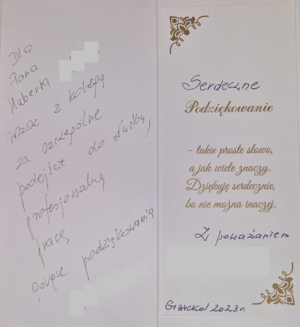 Dla
Pana
Huberta
wraz z kolegą
za szczególne
podejście do służby,
profesjonalną
pracę
gorące podziękowania
Serdeczne
Podziękowanie
- takie proste słowo,
a jak wiele znaczy.
Dziękuję serdecznie,
bo nie można inaczej.
Z poważaniem
2023r.